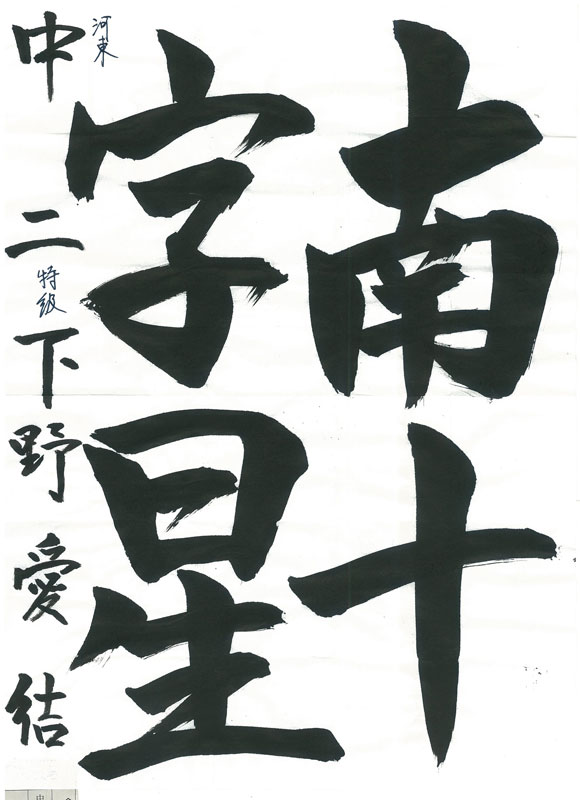 南十
字星
河東
中二 下野愛結
特級